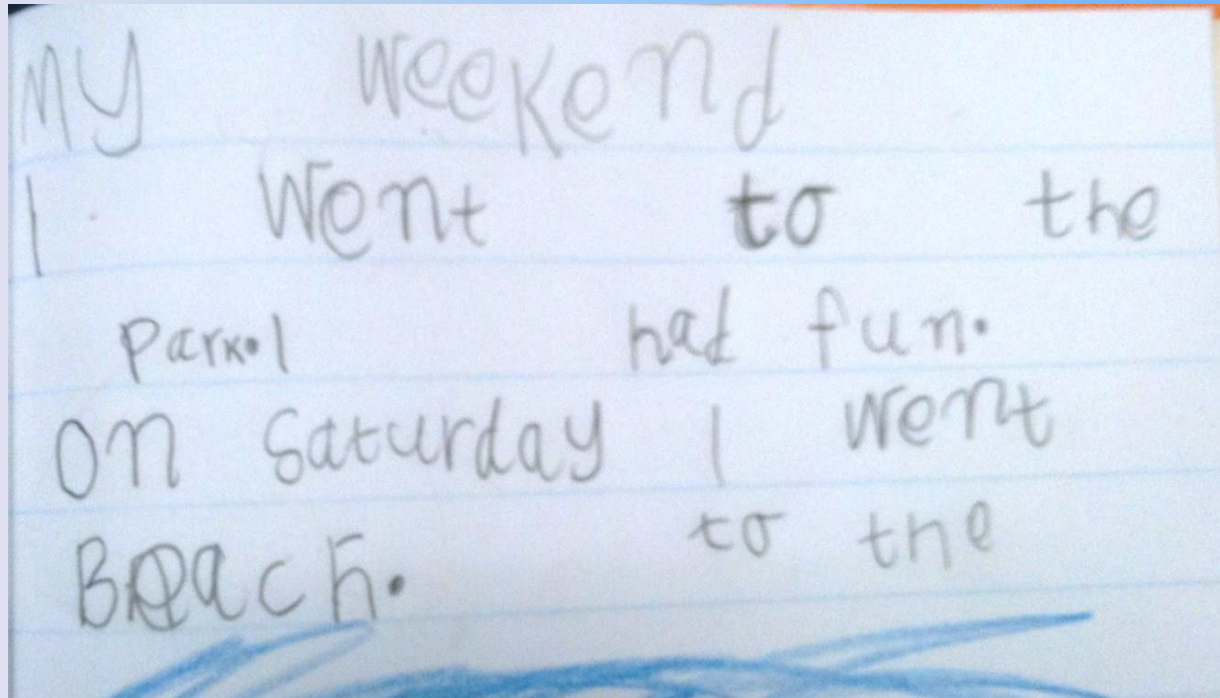 My weekend
I went to the
Park. I had fun.
On Saturday I went
to the
Beach.